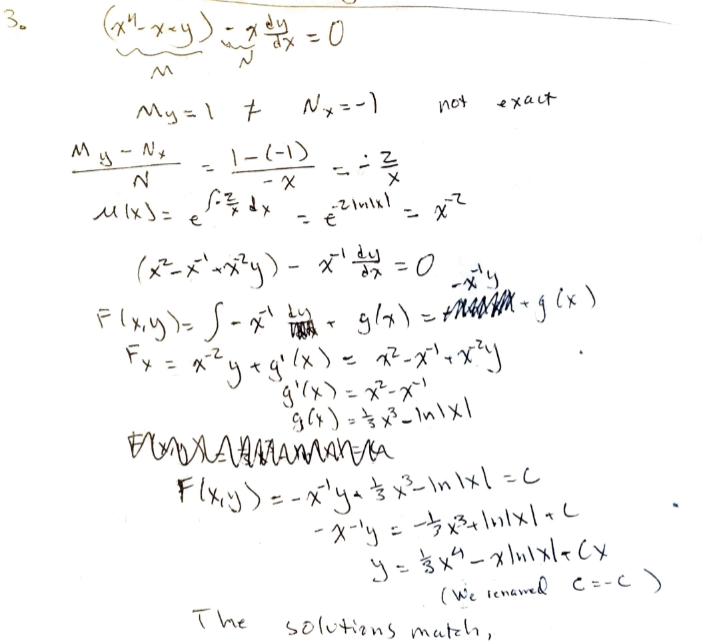 3. (x⁴ - x + y) - x dy/dx = 0
M N
My = 1 ≠ Nx = -1 not exact
My - Nx / N = 1 - (-1) / -x = - 2/x
μ(x) = e^∫-2/x dx = e^-2 ln|x| = x⁻²
(x² - x⁻¹ + x⁻²y) - x⁻¹ dy/dx = 0
-x⁻¹y
F(x,y) = ∫ - x⁻¹ dy + g(x) = + g(x)
Fx = x⁻²y + g'(x) = x² - x⁻¹ + x⁻²y
g'(x) = x² - x⁻¹
g(x) = 1/3 x³ - ln|x|
F(x,y) = -x⁻¹y + 1/3 x³ - ln|x| = C
-x⁻¹y = -1/3 x³ + ln|x| + C
y = 1/3 x⁴ - x ln|x| + Cx
(We renamed C = -C)
The solutions match,